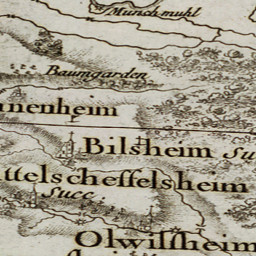 Münschmuhl
Baumgarden
nnenheim
Bilstheim Su
ttelscheffelsheim
Succ.
Olwissheim